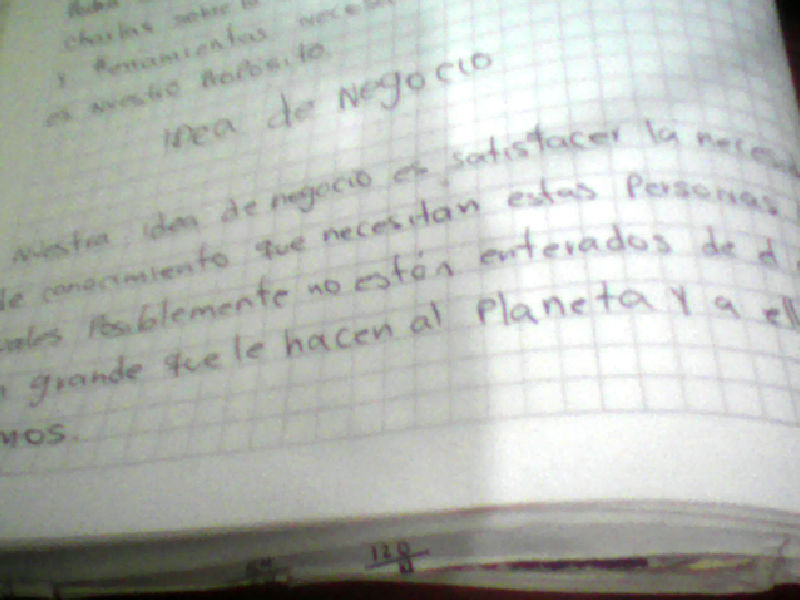 charlas sobre
y herramientas
es nuestro Proposito.
Idea de Negocio
nuestra idea de negocio es satisfacer la
de conocimiento que necesitan estas Personas
Posiblemente no están enterados de
grande que le hacen al Planeta y a
mos.
120